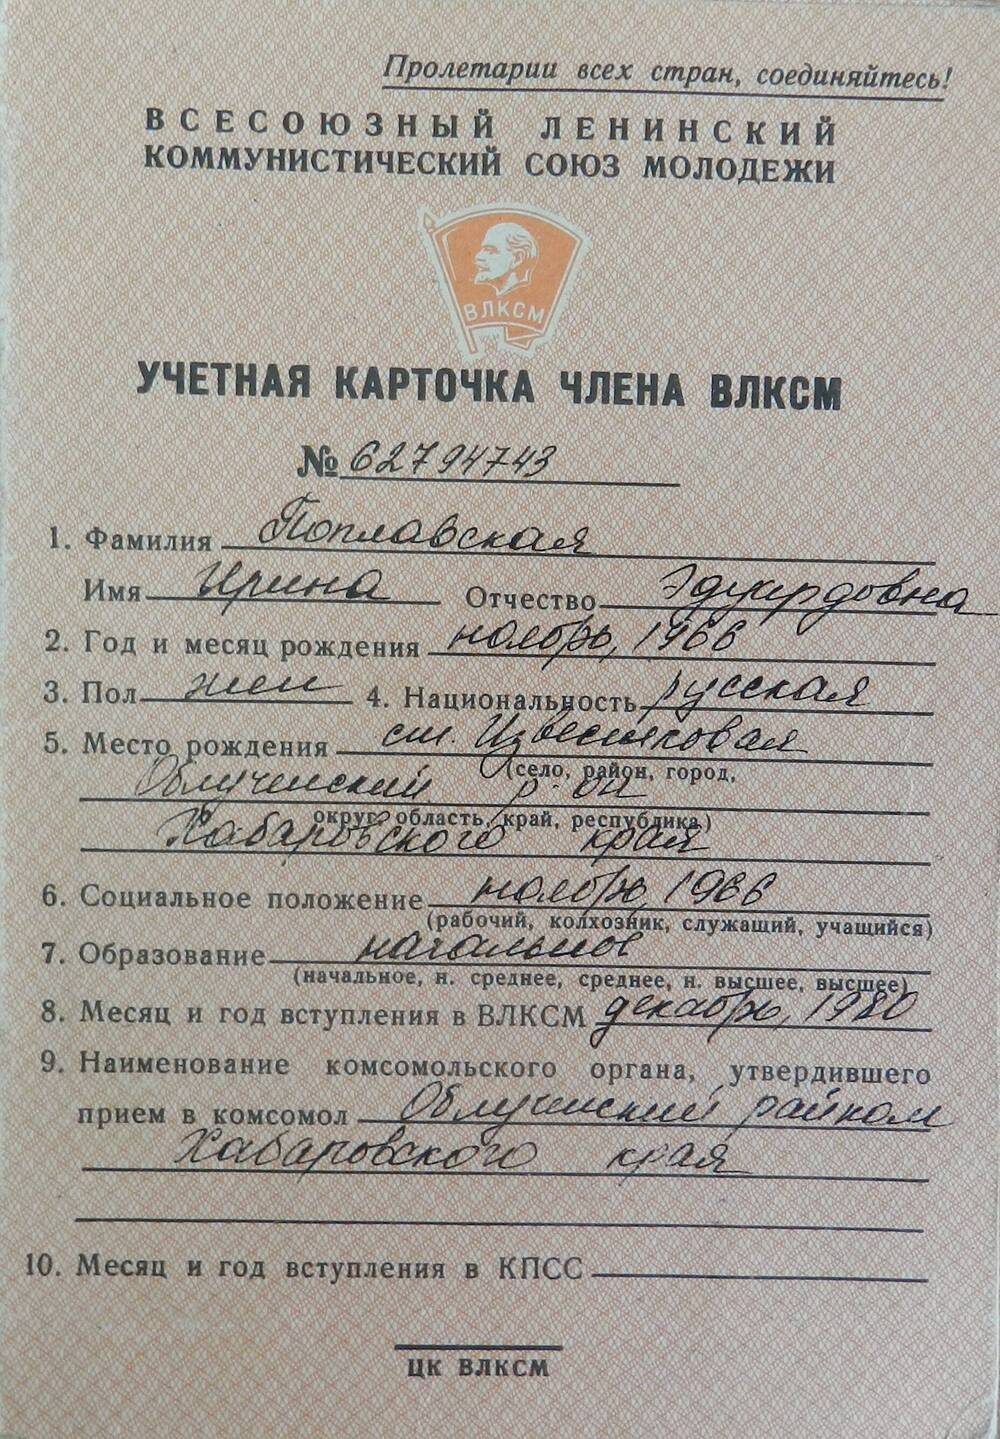 Пролетарии всех стран, соединяйтесь!
ВСЕСОЮЗНЫЙ ЛЕНИНСКИЙ
КОММУНИСТИЧЕСКИЙ СОЮЗ МОЛОДЕЖИ
ВЛКСМ
УЧЕТНАЯ КАРТОЧКА ЧЛЕНА ВЛКСМ
№ 62794743
1. Фамилия Поплавская
Имя Ирина Отчество Эдуардовна
2. Год и месяц рождения ноябрь, 1966
3. Пол жен 4. Национальность русская
5. Место рождения ст. Известковая
(село, район, город,
Облученский р-он
округ, область, край, республика)
Хабаровского края
6. Социальное положение ноябрь, 1966
(рабочий, колхозник, служащий, учащийся)
7. Образование начальное
(начальное, н. среднее, среднее, н. высшее, высшее)
8. Месяц и год вступления в ВЛКСМ декабрь, 1980
9. Наименование комсомольского органа, утвердившего
прием в комсомол Облученский райком
Хабаровского края
10. Месяц и год вступления в КПСС
ЦК ВЛКСМ